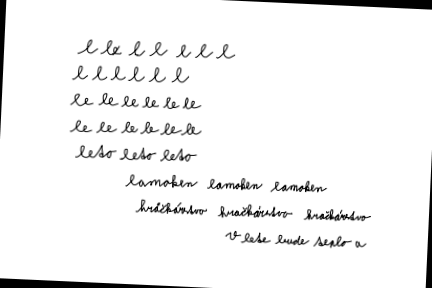 l le l l l l l
l l l l l l
le le le le le le
le le le le le le
leto leto leto
kamoken kamoken kamoken
hračkárstvo hračkárstvo hračkárstvo
V lete bude teplo a